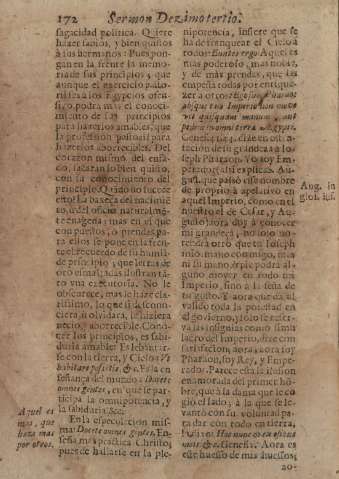 172 Sermon Dezimotertio.
sagacidad politica. Quiere
hazer sabios, y bien quistos
à sus hermanos: Pues pon-
gan en la frente la memo-
ria de sus principios; que
aunque el exercicio pasto-
ril sea à los Egypcios ofen-
sivo, podrà mas el conoci-
miento de sus principios
para hazerlos amables, que
la profession pastoral para
hazerlos aborrecibles. Del
corazon mismo del enfa-
do, sacaran lo bien quisto,
con la conocimiento del
principio. Quando no fucede
esto? La baxeza del nacimie
to, ù del oficio natural
te enagena; mas en el que
con puestos, ò prendas pa-
ra ellos se pone en la frente
el recuerdo de su humil-
de principio, que letras de
oro esmaltadas ilustran ta-
ro vna executoria. No le
obscurece, mas le haze cla-
rissimo, lo que si desconoc-
iera, ù olvidara, le hiziera
necio, y aborrecible. Cono-
cer los principios, es sabi-
duria amable: Es ebintar-
se con la tierra, y Cielo: Vt
habitare possitis, &c. Es la en-
señança del mundo: Docete
omnes gentes, en que se par-
ticipa la omnipotencia, y
la sabiduria &c.
En la especulacion mis-
ma: Docete omnes gentes. En-
seña mas practica Christo;
pues de hallarle en la ple-
nipotencia, Infiere que se
ha de franquear el Cielo à
todos: Euntes ergo. Aquel es
mas poderoso, mas noble,
y de mas prendas, que las
empeña todas por enrique-
zer à otro
absque tuo Imperio non move-
vit quisquam manum, aut
pedem in omni terra Ægypti.
Genes. 41. 44. dize en ostéta-
cion de su grandeza à Io-
seph Pharaon. Yo soy Em-
perador, assi explica S. Au-
gust. que passò esse nombre
de proprio à apelativo en
aquel Imperio, como en el
nuestro el de Cesar, y Au-
gusto: aora doy à conocer
mi grandeza; no solo no
tendrà otro que tu Ioseph
mio mano conmigo, mas
ni su mano, ni pie podrà al-
guno mover en todo mi
Imperio, sino à la seña de
tu gusto. Y aora que da al
valido toda la potestad en
el govierno, y solo se reser-
va las insignias como simu-
lacro del Imperio, dize con
satisfacion, aora, aora soy
Pharaon, soy Rey, y Empe-
rador. Parece esta la ilusion
enamorada del primer hõ-
bre, que à la dama que le co-
gio el lado, y à la que se le-
vantò con su voluntad pa-
ra dar con todo en tierra,
la dixo: Hoc nunc os ex ossibus
meis, &c. Genes. 2. Aora es
este huesso de mis huessos;
ao-
Aug. in
glos. ibi.
Aquel es
mas, que
haze mas
por otros.